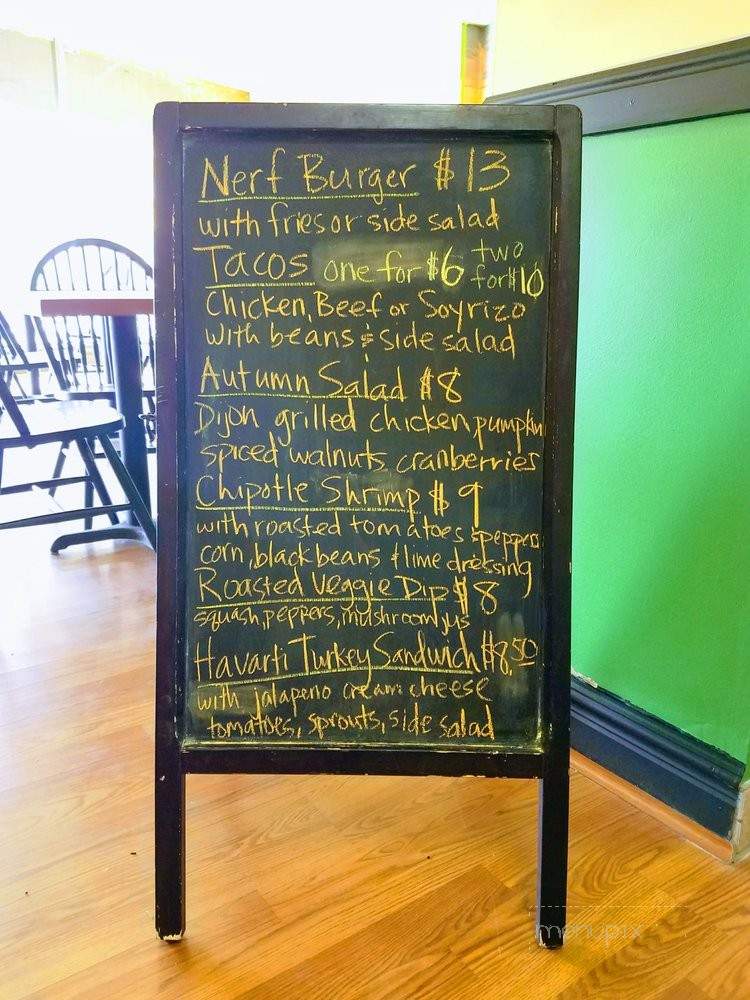 Nerf Burger $13
with fries or side salad
Tacos one for $6 two for $10
Chicken, Beef or Soyrizo
with beans & side salad
Autumn Salad $8
Dijon grilled chicken pumpkin
spiced walnuts cranberries
Chipotle Shrimp $9
with roasted tomatoes & peppers
corn, black beans & lime dressing
Roasted Veggie Dip $8
squash, peppers, mushroom jus
Havarti Turkey Sandwich $8.50
with jalapeno cream cheese
tomatoes, sprouts, side salad
menupix